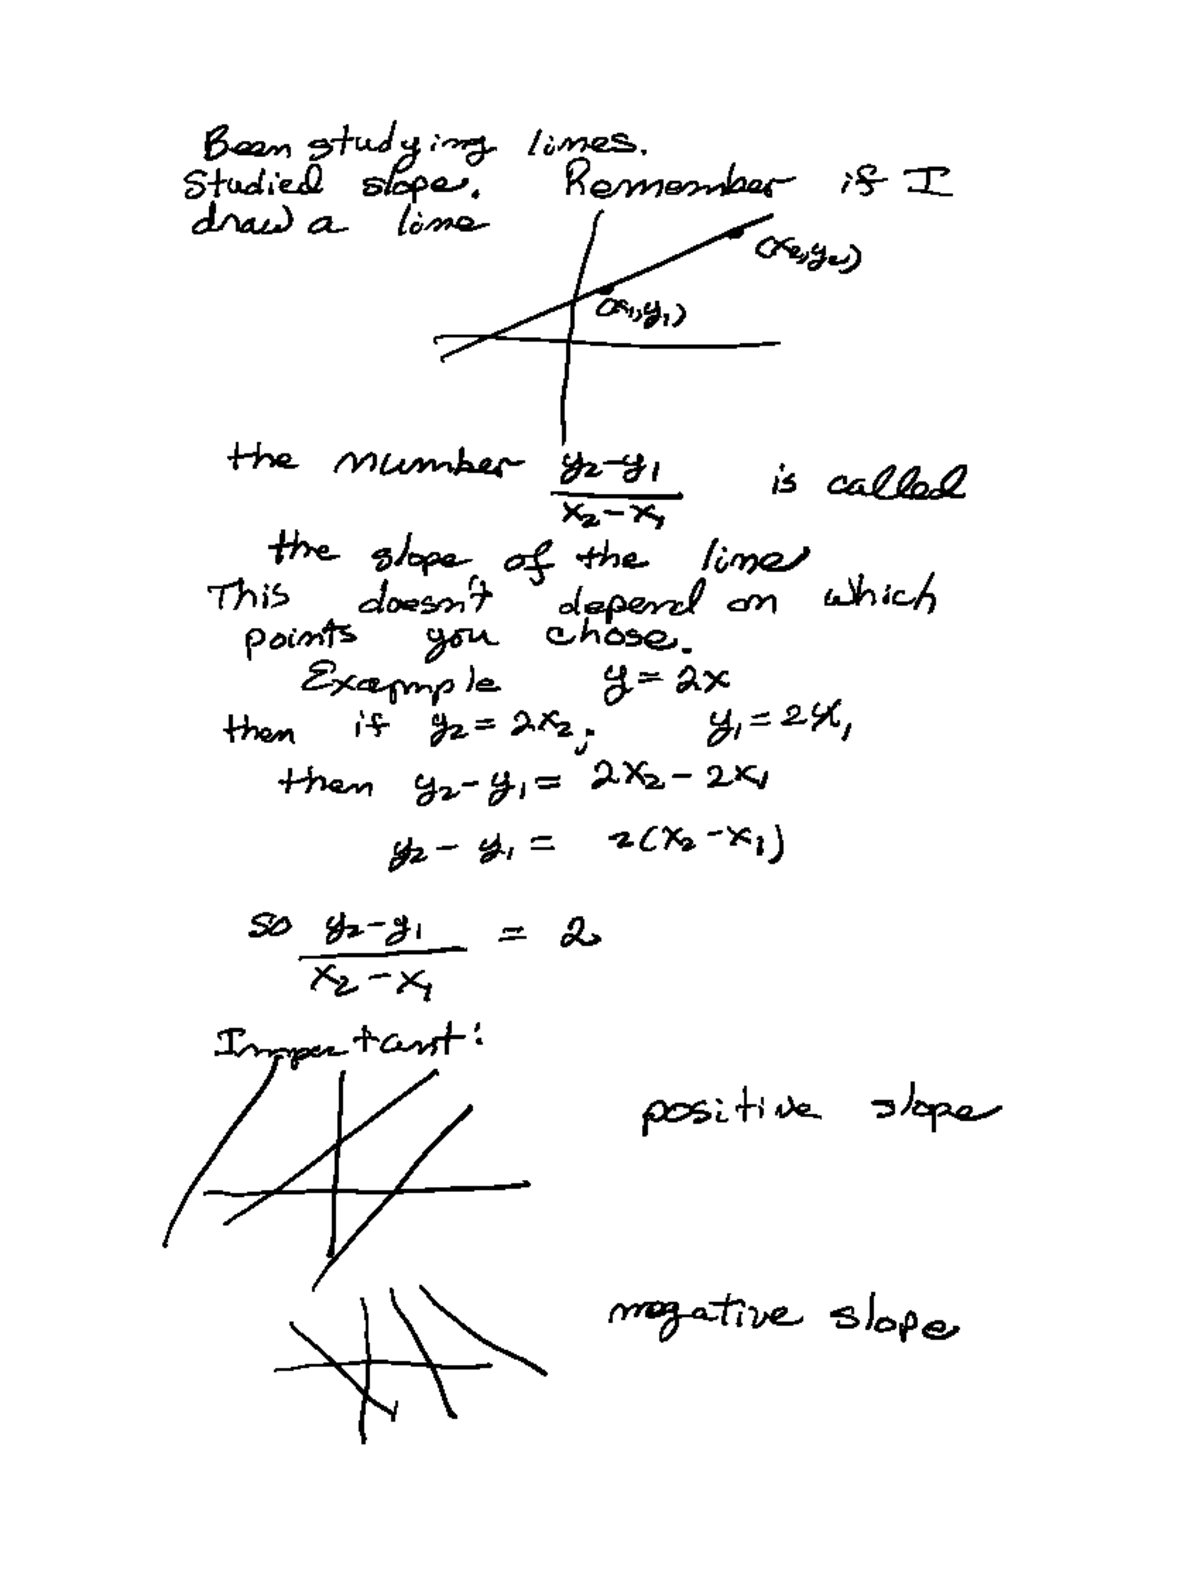 Been studying lines.
Studied slope. Remember if I
draw a line
(x₂,y₂)
(x₁,y₁)
the number y₂-y₁ / x₂-x₁ is called
the slope of the line
This doesn't depend on which
points you chose.
Example y = 2x
then if y₂ = 2x₂; y₁ = 2x₁
then y₂-y₁ = 2x₂ - 2x₁
y₂ - y₁ = 2(x₂-x₁)
so y₂-y₁ / x₂-x₁ = 2
Important:
positive slope
negative slope